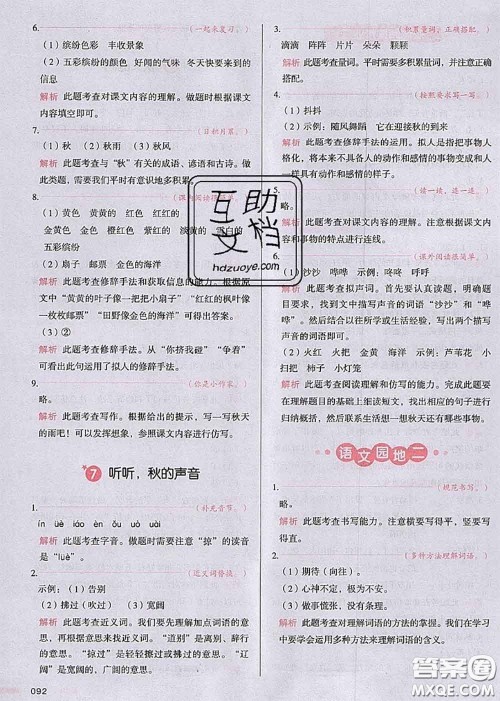 6.（一起来复习。）
（1）缤纷色彩　丰收景象
（2）五彩缤纷的颜色　好闻的气味　冬天快要来到的
信息
解析　此题考查对课文内容的理解。做题时根据课文
内容填空即可。
7.（日积月累。）
（1）秋　（2）秋雨　（3）秋风
解析　此题考查与“秋”有关的成语、谚语和古诗。做
此类题，需要我们平时有意识地多积累。
8.
（1）黄色　黄黄的　红色　红红的
金黄色　金色　橙红色　紫红的　淡黄的　雪白的
五彩缤纷
（2）扇子　邮票　金色的海洋
解析　此题考查修辞手法和获取信息的能力。根据原
文中“黄黄的叶子像一把把小扇子”“红红的枫叶像
一枚枚邮票”“田野像金色的海洋”可得出答案。
（3）②
解析　此题考查修辞手法。从“你挤我碰”“争着”可
看出此句运用了拟人的修辞手法。
9.（你是小作家。）
略。
解析　此题考查写作。根据给出的提示，写一写秋天
的雨吧！可以发挥想象，参照课文内容进行仿写。
7　听听，秋的声音
1.（补充音节。）
ín　üè　iáo　èn　ǒu　òu　uò
解析　此题考查字音。做题时需要注意“掠”的读音
是“lüè”。
2.（近义词替换。）
示例：（1）告别
（2）拂过（吹过）　（3）宽阔
解析　此题考查近义词。我们要先理解加点词语的意
思，再根据意思来找出近义词。“道别”是离别，辞行
的意思。“掠过”是轻轻擦过或拂过的意思。“辽
阔”是宽广的、广阔的意思。
092
3.（积累量词，正确搭配。）
滴滴　阵阵　片片　朵朵　颗颗
解析　此题考查量词。平时需要多积累量词，并正确
搭配。
4.（按照要求写一写。）
（1）抖抖
（2）示例：随风舞蹈　它在迎接秋的到来
解析　此题考查修辞手法的运用。拟人是指把事物人
格化，将本来不具备人的动作和感情的事物变成和人
一样具有动作和感情的样子。
5.（读一读，连一连。）
略。
解析　此题考查对课文内容的理解。注意根据课文内
容和事物的特点进行连线。
6.（课外阅读很简单。）
（1）沙沙　哗哗　示例：咚咚　呼呼
解析　此题考查拟声词。首先要认真读题，明确题
目要求，从短文中找到描写声音的词语“沙沙”和“哗
哗”。然后结合以往所学和生活经验，尝试写出两个
描写声音的词语。
（2）火红　火把　金黄　海洋　示例：芦苇花　小
扫把　柿子　小灯笼
解析　此题考查阅读理解和仿写的能力。完成此题要
在理解题目的基础上读短文，对文中出现的句子进行
归纳概括，然后联系生活想想秋天还有哪些事物。
语文园地二
1.（规范书写。）
略。
解析　此题考查书写能力。注意横要写得平，竖要写
得直。
2.（多种方法理解词语。）
（1）期待（向往）。
（2）心神不定，极为不安。
（3）做事慌张，没有条理。
解析　此题考查对理解词语的方法的掌握。我们在学
习中要学会运用多种方法来理解词语的含义。
互助
文档
hdzuoye.com
答案圈
MXQE.COM